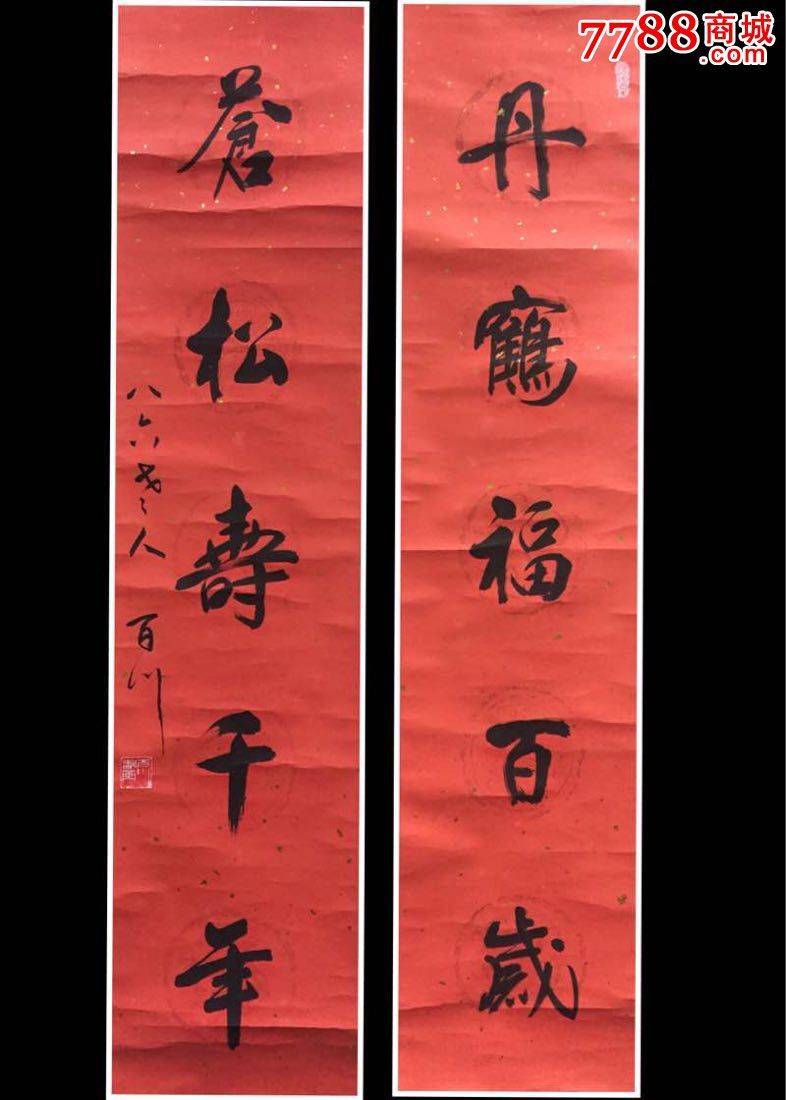 7788商城
.com
丹鶴福百歲
蒼松壽千年
八六老人 百川